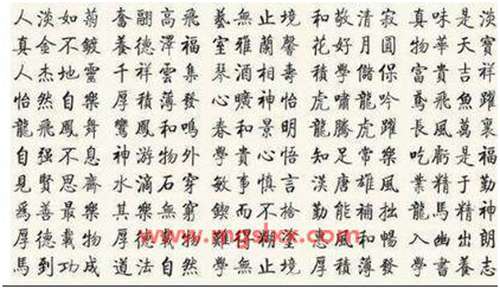 人淡如菊 奮翮高飛 藝無止境 和敬清寂 真味是淡
真金不鍍 養德澤福 室雅蘭馨 花好月圓 物華天寶
人杰地靈 千祥雲集 琴酒相壽 積學儲保 富貴吉祥
怡然自樂 厚積薄發 心曠神怡 虎嘯龍吟 鳶飛魚躍
龍飛鳳舞 鸞鳳和鳴 春和景明 龍騰虎躍 長風萬裏
自强不息 神游物外 學貴心悟 知足常樂 吃虧是福
見賢思齋 水滴石穿 敏事慎言 漢唐雄風 業精于勤
為善最樂 其樂無窮 鍥而不捨 勤能補拙 龍馬精神
厚德載物 惠風和暢
馬到功成 道法自然 學無止境 厚積薄發 學書養志